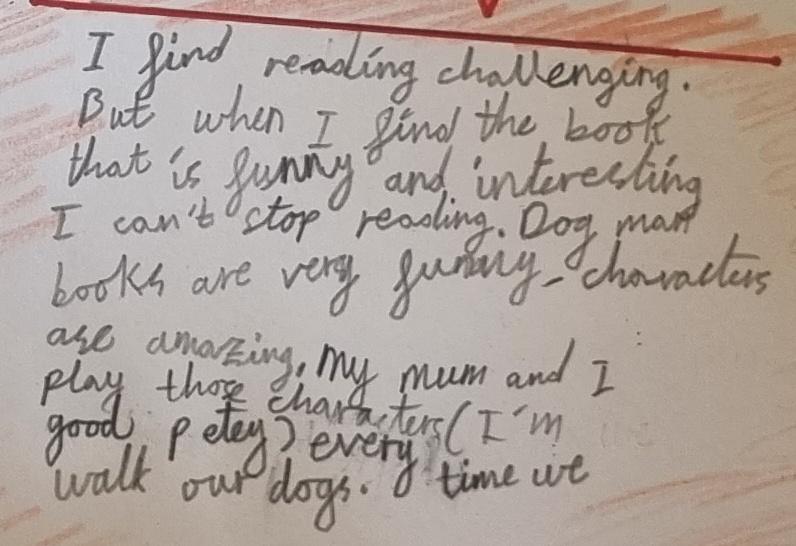 I find reading challenging.
But when I find the book
that is funny and interesting
I can't stop reading. Dog man
books are very funny - characters
are amazing. My mum and I
play those characters (I'm
good petey) every time we
walk our dogs.